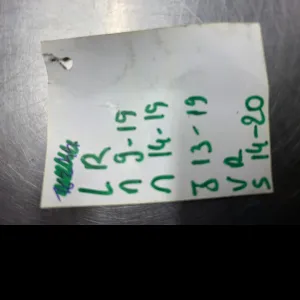 L R
M 9-19
M 14-19
J 13-19
V R
S 14-20